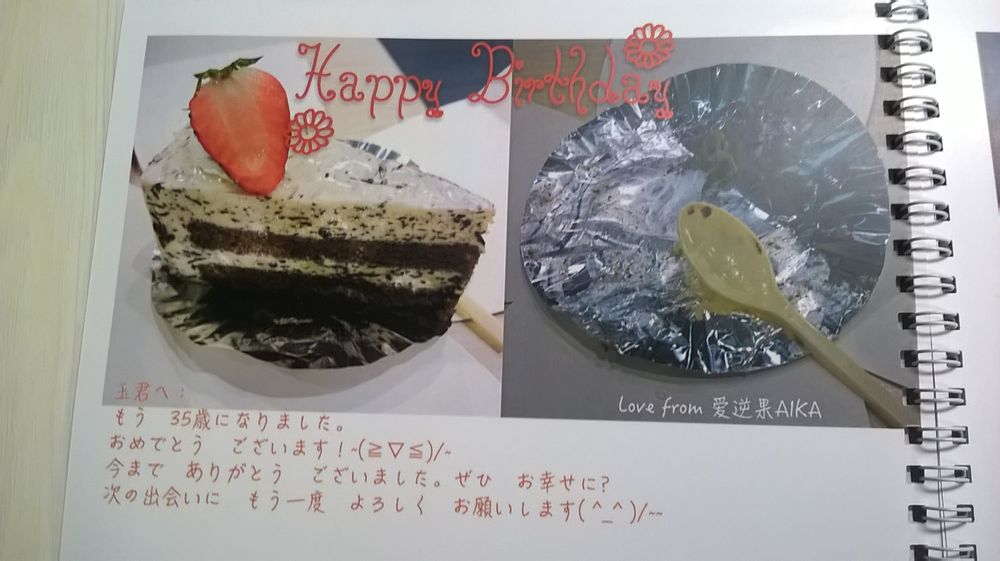 Happy Birthday
Love from 愛逆果AIKA
玉君へ：
もう 35歳になりました。
おめでとう ございます！~(≧∇≦)/~
今まで ありがとう ございました。ぜひ お幸せに？
次の出会いに もう一度 よろしく お願いします(^_^)/~~